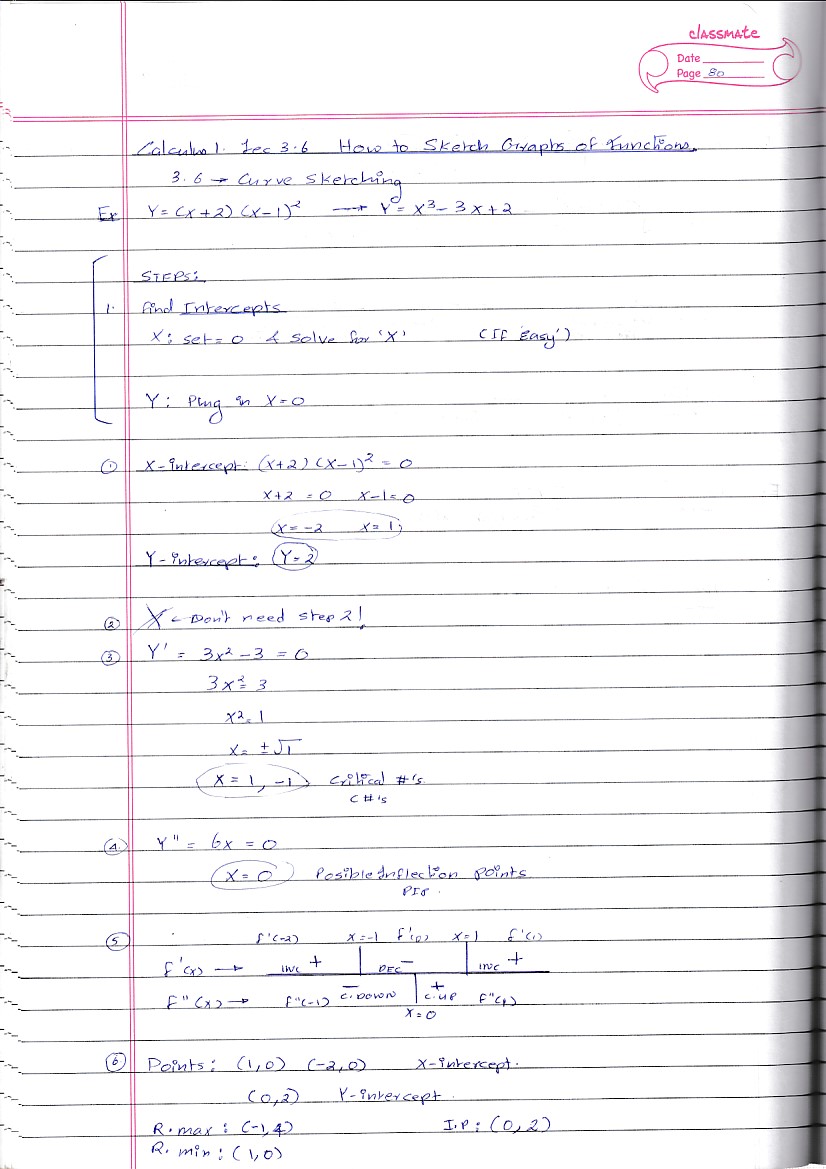 classmate
Date
Page 80
Calculus 1. Lec 3.6 How to Sketch Graphs of Functions.
3.6 → Curve Sketching
Ex Y = (x+2) (x-1)² → Y = x³ - 3x + 2
STEPS:
1. find Intercepts
X: set = 0 & solve for 'X' (If 'easy')
Y: Plug in X=0
① X-intercept: (x+2) (x-1)² = 0
x+2 = 0 x-1=0
x = -2 x=1;
Y-intercept: Y=2
② X ← Don't need step 2!
③ Y' = 3x² - 3 = 0
3x² = 3
x² = 1
x = ±√1
x = 1, -1 Critical #'s
C #'s
④ Y" = 6x = 0
x = 0 Posible Inflection points
PIP.
⑤ f'(-2) x=-1 f'(0) x=1 f'(1)
f'(x) → INC + DEC - INC +
f"(x) → f"(-1) - C.DOWN + C.UP f"(1)
x=0
⑥ Points: (1,0) (-2,0) X-intercept.
(0,2) Y-intercept.
R.max: (-1,4) I.P: (0,2)
R.min: (1,0)